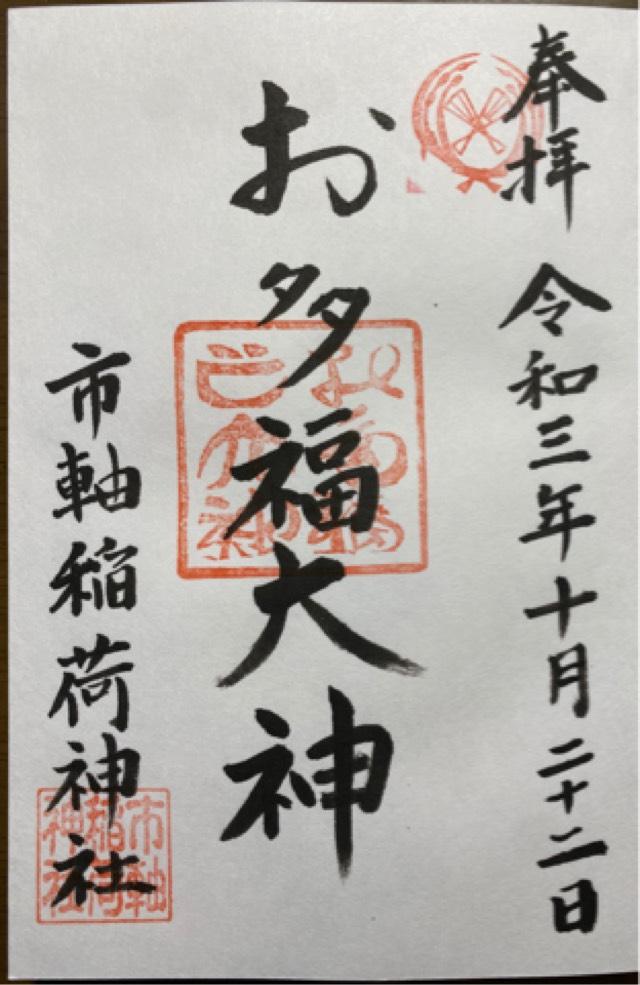 奉拝 令和三年十月二十二日
お多福大神
市軸稲荷神社
市軸稲荷神社